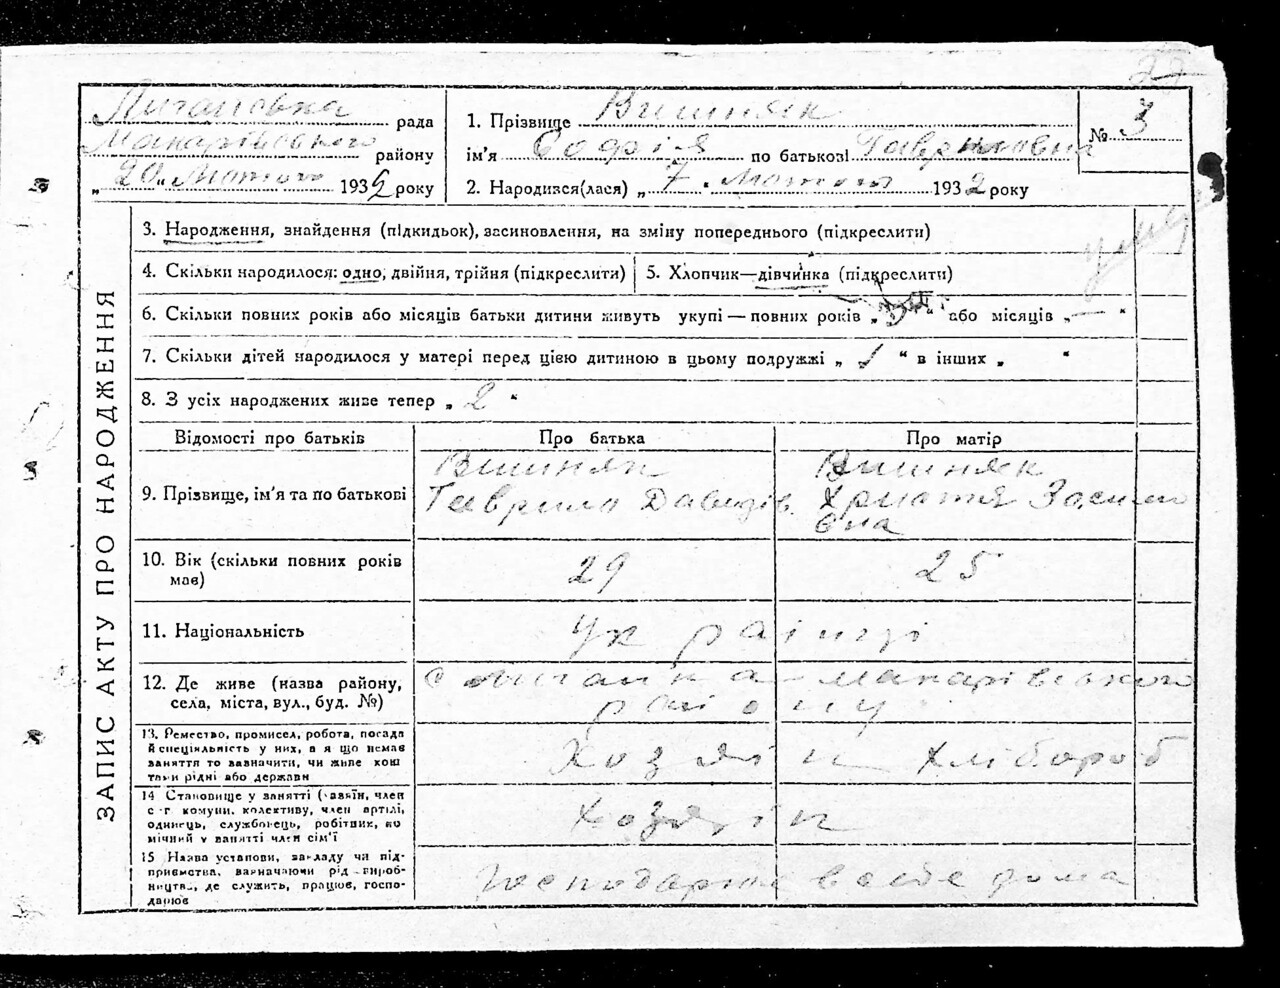 22
Лигаївська рада
Макарівського району
„ 20 „ Лютого 1932 року
1. Прізвище Вишняк
ім'я Софія по батькові Гавриловна
2. Народився(лася) „ 7 " Лютого 1932 року
№ 3
ЗАПИС АКТУ ПРО НАРОДЖЕННЯ
3. Народження, знайдення (підкидьок), засиновлення, на зміну попереднього (підкреслити)
4. Скільки народилося: одно, двійня, трійня (підкреслити)
5. Хлопчик—дівчинка (підкреслити)
6. Скільки повних років або місяців батьки дитини живуть укупі — повних років „ " або місяців „ — "
7. Скільки дітей народилося у матері перед цією дитиною в цьому подружжі „ 1 " в інших „ "
8. З усіх народжених живе тепер „ 2 "
Відомості про батьків Про батька Про матір
9. Прізвище, ім'я та по батькові
Вишняк
Гаврило Давидів.
Вишняк
Христя
вна
10. Вік (скільки повних років
має)
29
25
11. Національність
Українці
12. Де живе (назва району,
села, міста, вул., буд. №)
с Макарівського
району
13. Ремество, промисел, робота, посада
й спеціяльність у них, а я що немає
заняття то зазначити, чи живе кош
тами рідні або держави
Хозяїн хлібороб
14 Становище у занятті (хазяїн, член
с-г. комуни, колективу, член артілі,
одинець, службовець, робітник, по
мічний у занятті член сім'ї
Хозяїн
15 Назва установи, закладу чи під-
приємства, зазначаючи рід вироб-
ництва, де служить, працює, госпо-
дарює
Господарює в себе дома